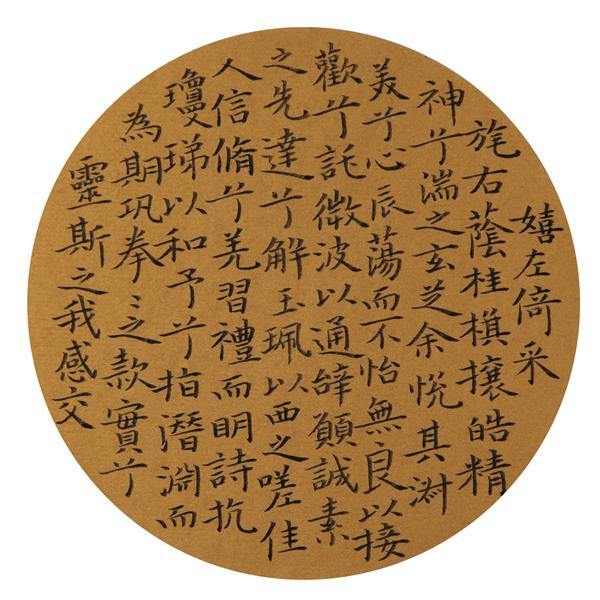 嬉左倚采
旄右蔭桂棋攘皓精
神兮湍之玄芝余悅其淑
美兮心辰蕩而不怡無良以接
歡兮託微波以通辝願誠素
之先達兮解玉珮以西之嗟佳
人信脩兮羌習禮而明詩抗
瓊珶以和予兮指潛淵而
為期巩拳〻之款實兮
靈斯之我感交